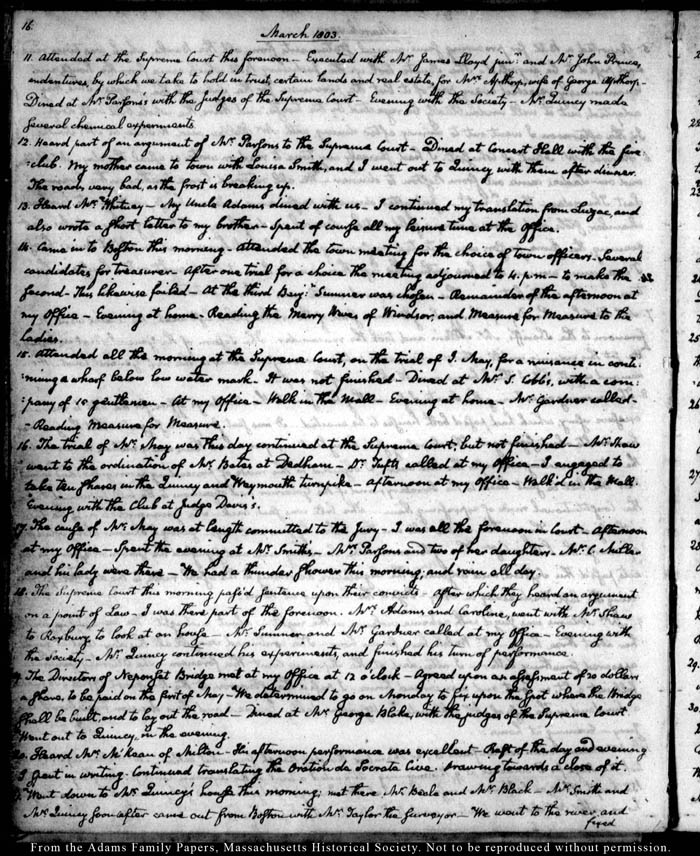 16.
March 1803.
11. Attended at the Supreme Court this forenoon - Executed with Mr. James Lloyd junr. and Mr. John Prince,
indentures, by which we take to hold in trust, certain lands and real estate, for Mrs. Apthorp, wife of George Apthorp -
Dined at Mr. Parsons's with the Judges of the Supreme Court - Evening with the Society - Mr. Quincy made
several chemical experiments.
12. Heard part of an argument of Mr. Parsons to the Supreme Court - Dined at Concert Hall with the fire
:club. My mother came to town with Louisa Smith, and I went out to Quincy with them after dinner.
The roads very bad, as the frost is breaking up.
13. Heard Mr. Whitney - My Uncle Adams dined with us - I continued my translation from Luzac, and
also wrote a short letter to my brother - Spent of course all my leisure time at the Office.
14. Came in to Boston this morning - Attended the town meeting for the choice of town officers - Several
candidates for treasurer - After one trial for a choice the meeting adjourned to 4. p.m - to make the
second - This likewise failed - At the third Benj:n Sumner was chosen - Remainder of the afternoon at
my Office - Evening at home - Reading the Merry Wives of Windsor, and Measure for Measure to the
ladies.
15. Attended all the morning at the Supreme Court, on the trial of J. May, for a nuisance in conti-
:nuing a wharf below low water mark - It was not finished - Dined at Mr. S. Cobb's, with a com-
:pany of 10 gentlemen - At my Office - Walk in the Mall - Evening at home - Mr. Gardner called -
- Reading Measure for Measure.
16. The trial of Mr. May was this day continued at the Supreme Court; but not finished - Mr. Shaw
went to the ordination of Mr. Bates at Dedham - Dr. Tufts called at my Office - I engaged to
take ten shares in the Quincy and Weymouth turnpike - Afternoon at my Office - Walk'd in the Mall.
Evening with the Club at Judge Davis's.
17. The cause of Mr. May was at length committed to the Jury - I was all the forenoon in Court - Afternoon
at my Office - Spent the evening at Mr. Smith's - Mrs. Parsons and two of her daughters - Mr. C. Miller
and his lady were there - We had a thunder shower this morning; and rain all day.
18. The Supreme Court this morning pass'd sentence upon their convicts - After which they heard an argument
on a point of Law - I was there part of the forenoon. Mrs. Adams and Caroline, went with Mr. Shaw
to Roxbury to look at an house - Mr. Sumner and Mr. Gardner called at my Office - Evening with
the Society - Mr. Quincy continued his experiments, and finished his turn of performance.
19. The Directors of Neponset Bridge met at my Office at 12 o'clock - Agreed upon an assessment of 20 dollars
a share, to be paid on the first of May - We determined to go on Monday to fix upon the spot where the Bridge
shall be built, and to lay out the road - Dined at Mr. George Blake, with the judges of the Supreme Court
Went out to Quincy, in the evening.
20. Heard Mr. McKean of Milton - His afternoon performance was excellent - Rest of the day and evening
I spent in writing. Continued translating the Oration de Socrate Cive. Drawing towards a close of it.
Went down to Mr. Quincy's house this morning; met there Mr. Beale and Mr. Black - Mr. Smith and
Mr. Quincy soon after came out from Boston with Mr. Taylor the Surveyor - We went to the river, and
fixed
From the Adams Family Papers, Massachusetts Historical Society. Not to be reproduced without permission.